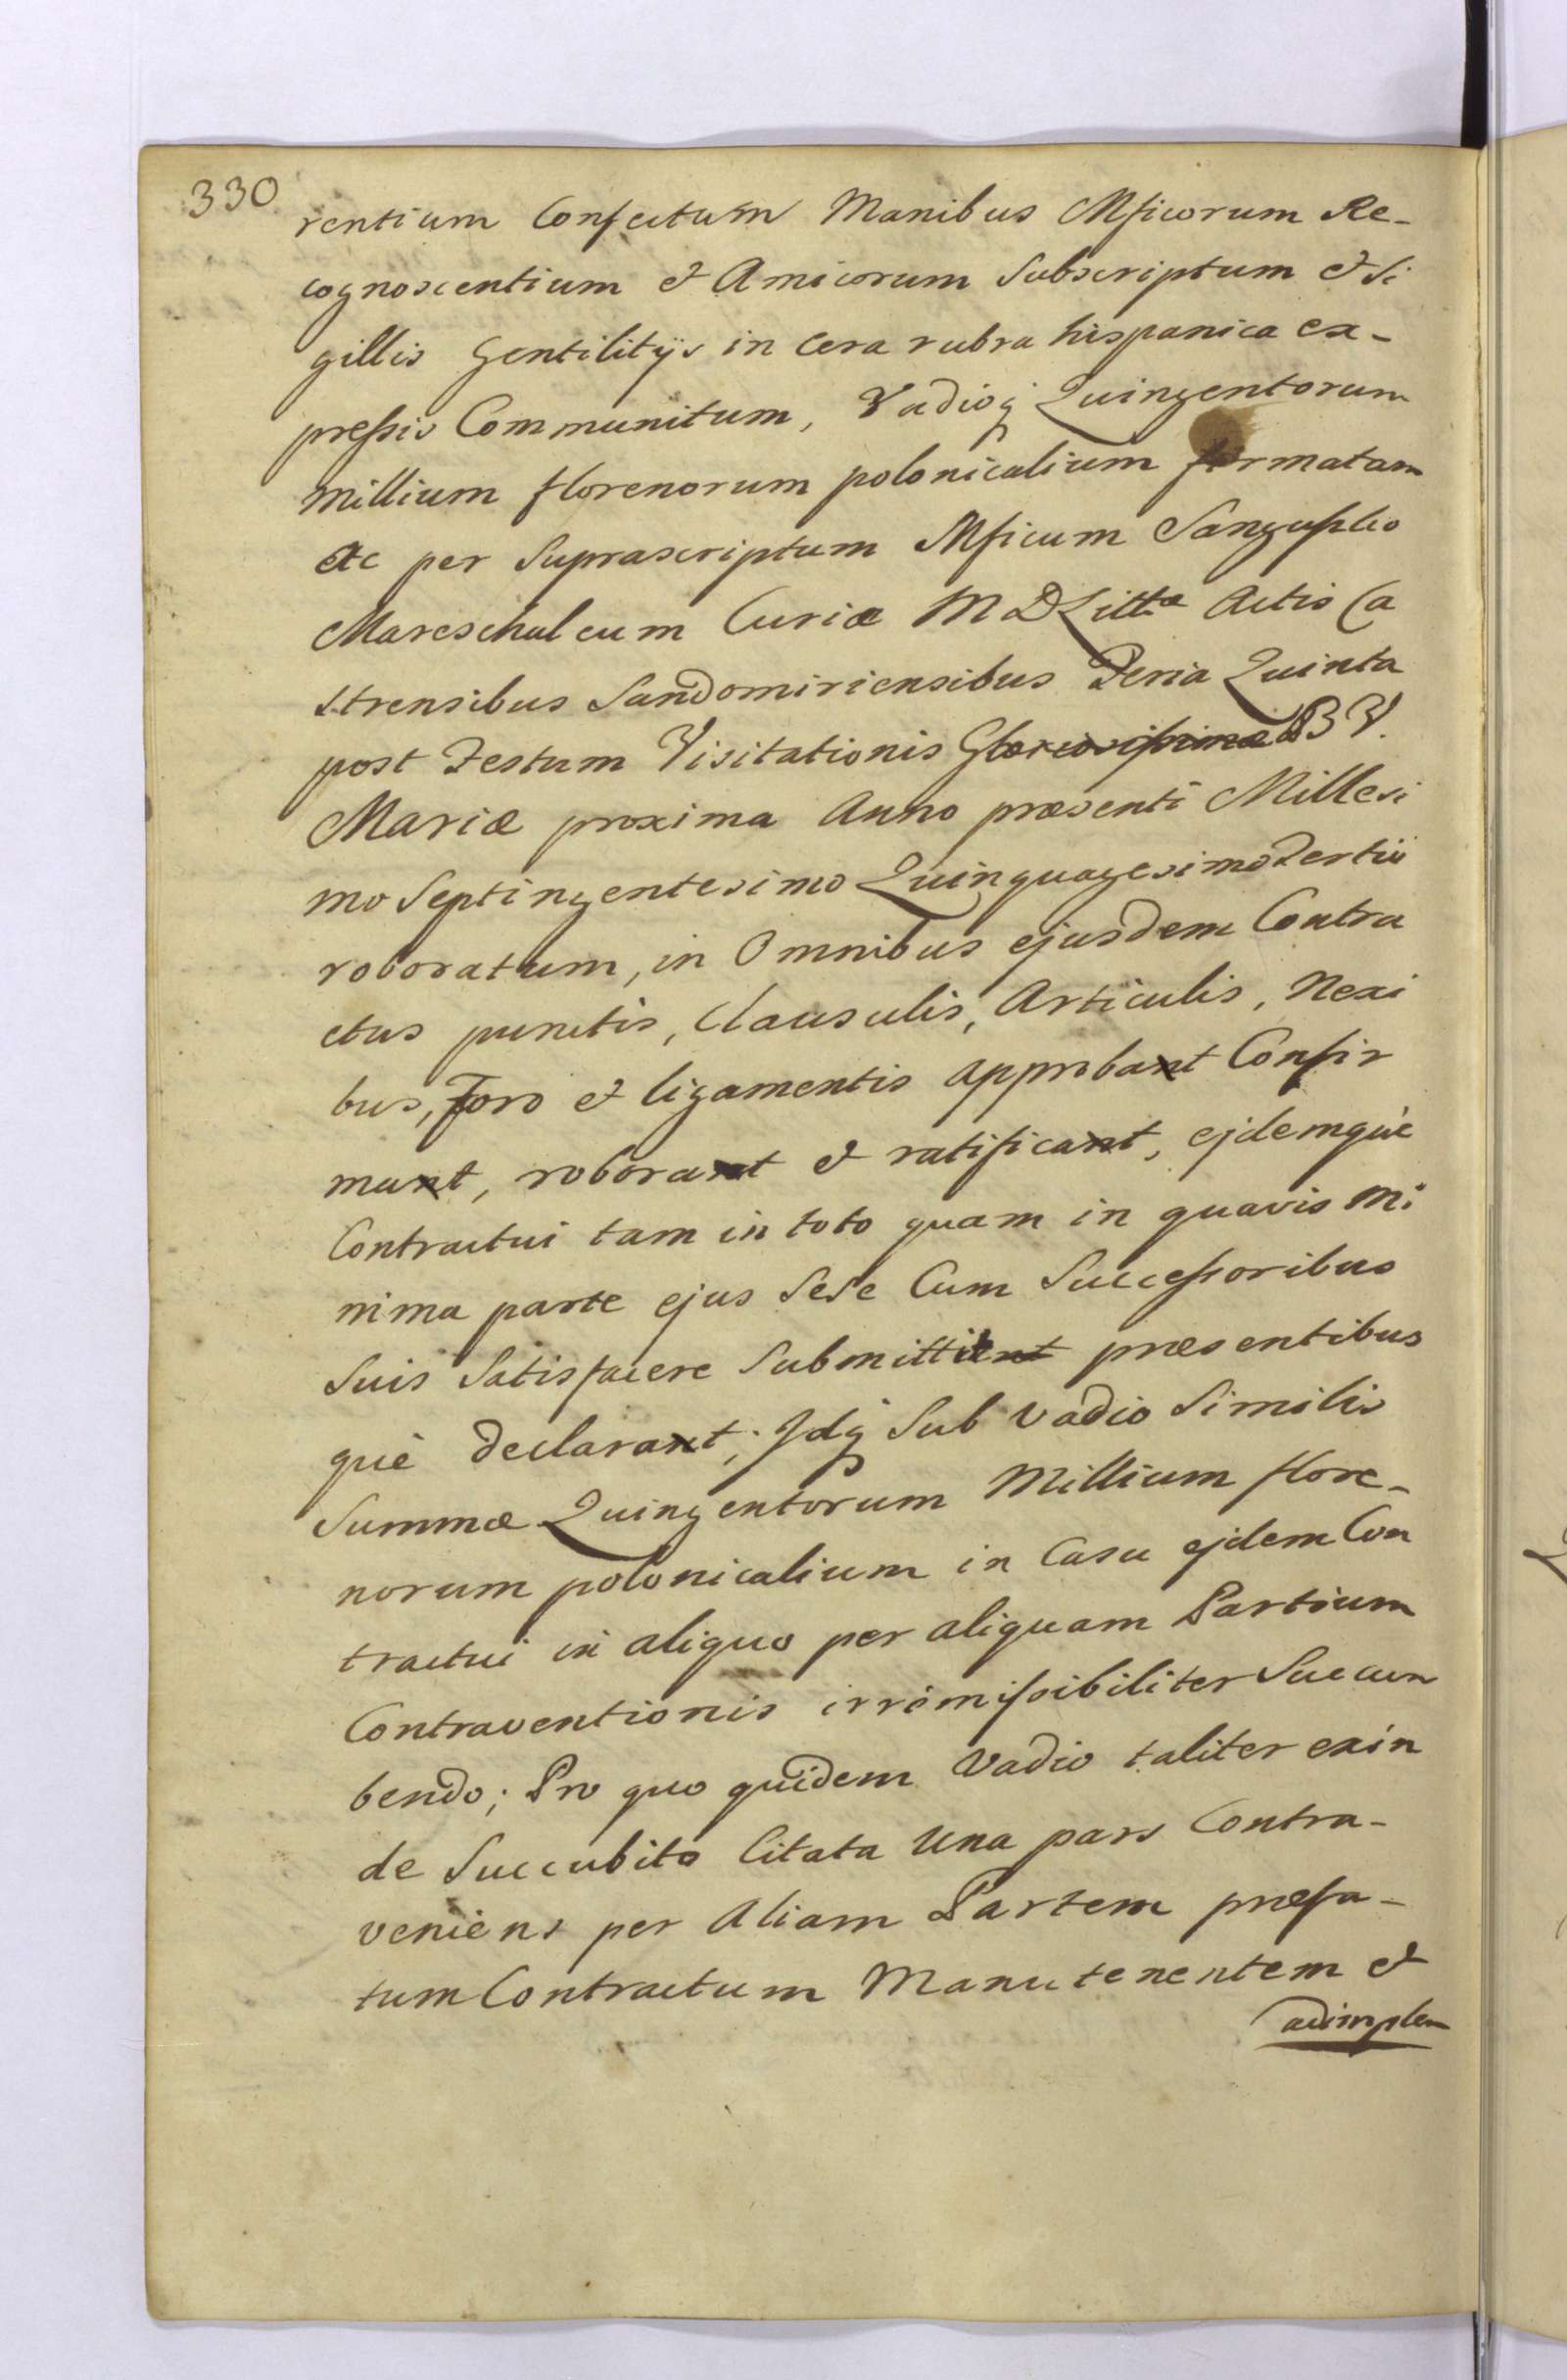 330
rentium Confectum Manibus Mficorum Re-
cognoscentium et Amicorum Subscriptum et Si
gillis Gentilitijs in Cera rubra hispanica ex-
preſsis Communitum, Vadioq Quingentorum
Millium florenorum polonicalium firmatam
ac per Suprascriptum Mficum Sanguſzko
Mareschalcum Curiæ M D Littæ Actis Ca
strensibus Sandomiriensibus Feria Quinta
post Festum Visitationis Gloriosiſsimæ B V.
Mariæ proxima Anno præsenti Millesi
mo Septingentesimo Quinquagesimo Tertio
roboratum, in Omnibus ejusdem Contra
ctus punctis, Clausulis, Articulis, Nexi
bus, Foro et ligamentis approbant Confir
mant, roborant et ratificant, ejdemquè
Contractui tam in toto quam in quavis Mi
nima parte ejus Sese Cum Succeſsoribus
Suis Satisfacere Submittit præsentibus
què declarant; Idq Sub vadio Similis
Summæ Quingentorum Millium flore-
norum polonicalium in Casu ejdem Con
tractui in aliquo per aliquam Partium
Contraventionis irremiſsibiliter Succum
bendo; Pro quo quidem Vadio taliter exin
de Succubito Citata Una pars Contra-
veniens per Aliam Partem præfa-
tum Contractum Manutenentem et
adimplen